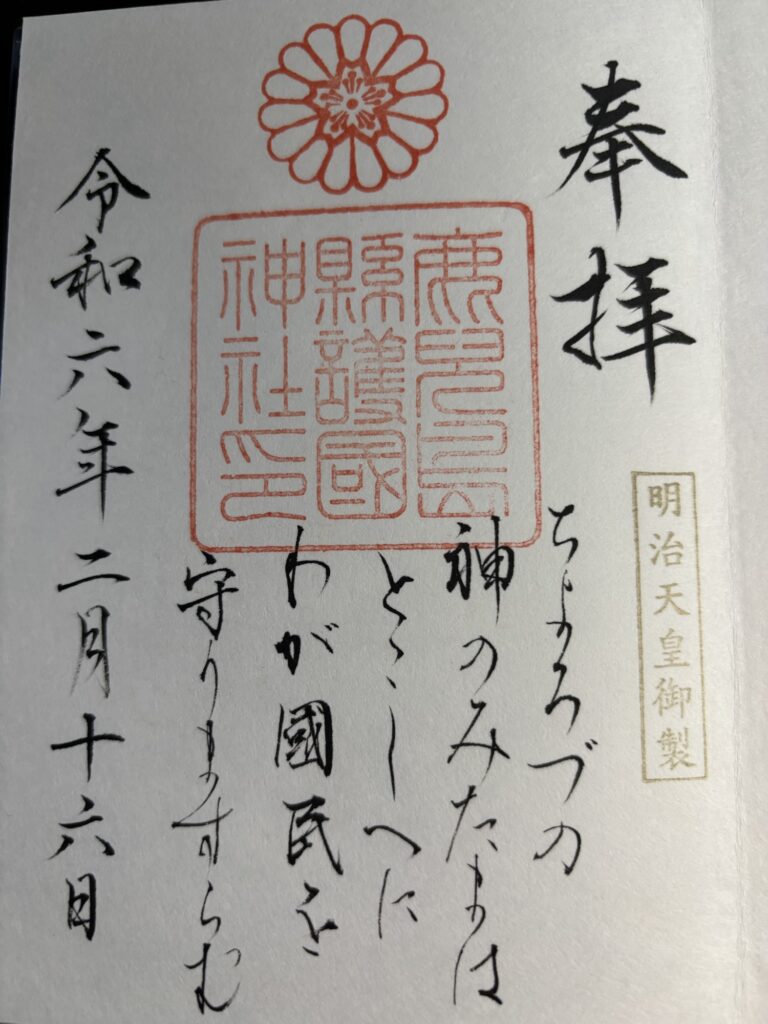 奉拝
明治天皇御製
ちよろづの
神のみたまは
とゝしへに
わが國民を
守りますらむ
鹿兒島
縣護國
神社印
令和六年二月十六日